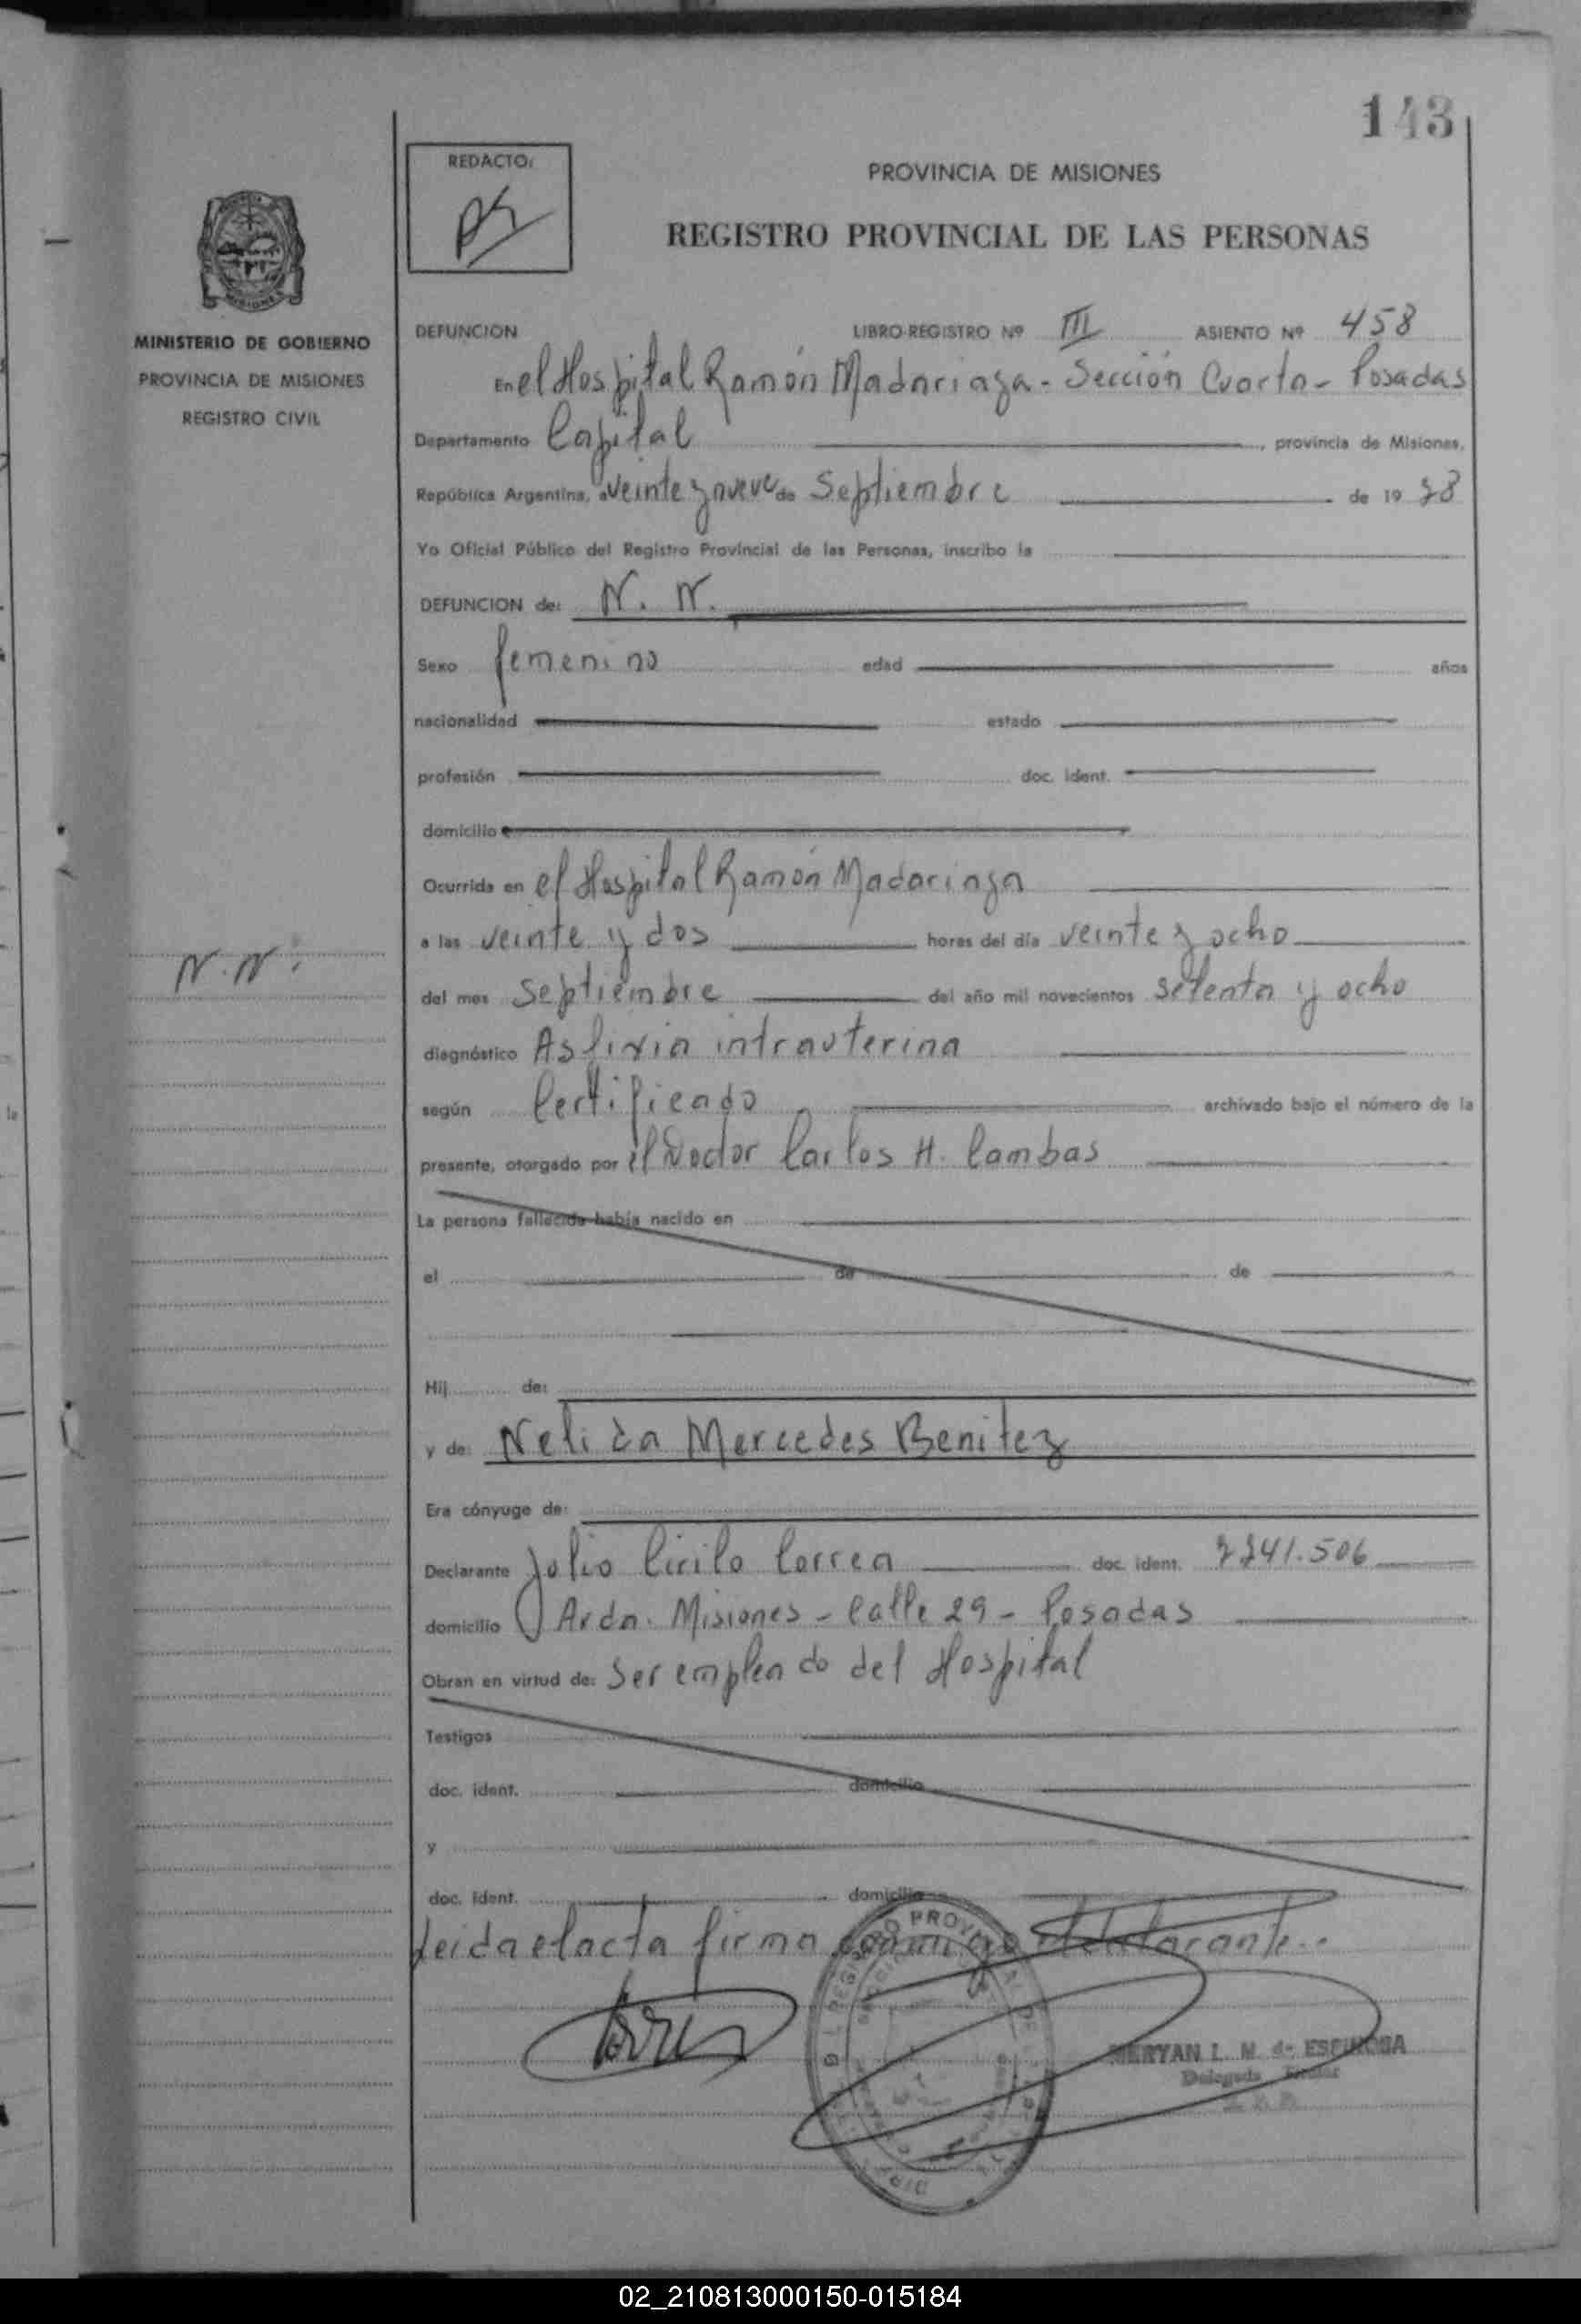 143
REDACTO:
PROVINCIA DE MISIONES
REGISTRO PROVINCIAL DE LAS PERSONAS
MINISTERIO DE GOBIERNO
PROVINCIA DE MISIONES
REGISTRO CIVIL
DEFUNCION LIBRO-REGISTRO Nº III ASIENTO Nº 458
En el Hospital Ramón Madariaga - Sección Cuarta - Posadas
Departamento Capital, provincia de Misiones,
República Argentina, a veinte y nueve de Septiembre de 1978
Yo Oficial Público del Registro Provincial de las Personas, inscribo la
DEFUNCION de: N. N.
Sexo femenino edad años
nacionalidad estado
profesión doc. ident.
domicilio
Ocurrida en el Hospital Ramón Madariaga
a las veinte y dos horas del día veinte y ocho
N.N.
del mes Septiembre del año mil novecientos setenta y ocho
diagnóstico Asfixia intrauterina
según Certificado archivado bajo el número de la
presente, otorgado por el Doctor Carlos H. Cambas
La persona fallecida había nacido en
el de de
Hij de:
y de: Nelida Mercedes Benitez
Era cónyuge de:
Declarante Julio Cirilo Correa doc. ident. 7241.506
domicilio Avda. Misiones - Calle 29 - Posadas
Obran en virtud de: Ser empleado del Hospital
Testigos
doc. ident. domicilio
y
doc. ident. domicilio
Leida el acta firma conmigo el declarante..
MERYAN L. M. de ESPINOSA
Delegada Titular
02_210813000150-015184